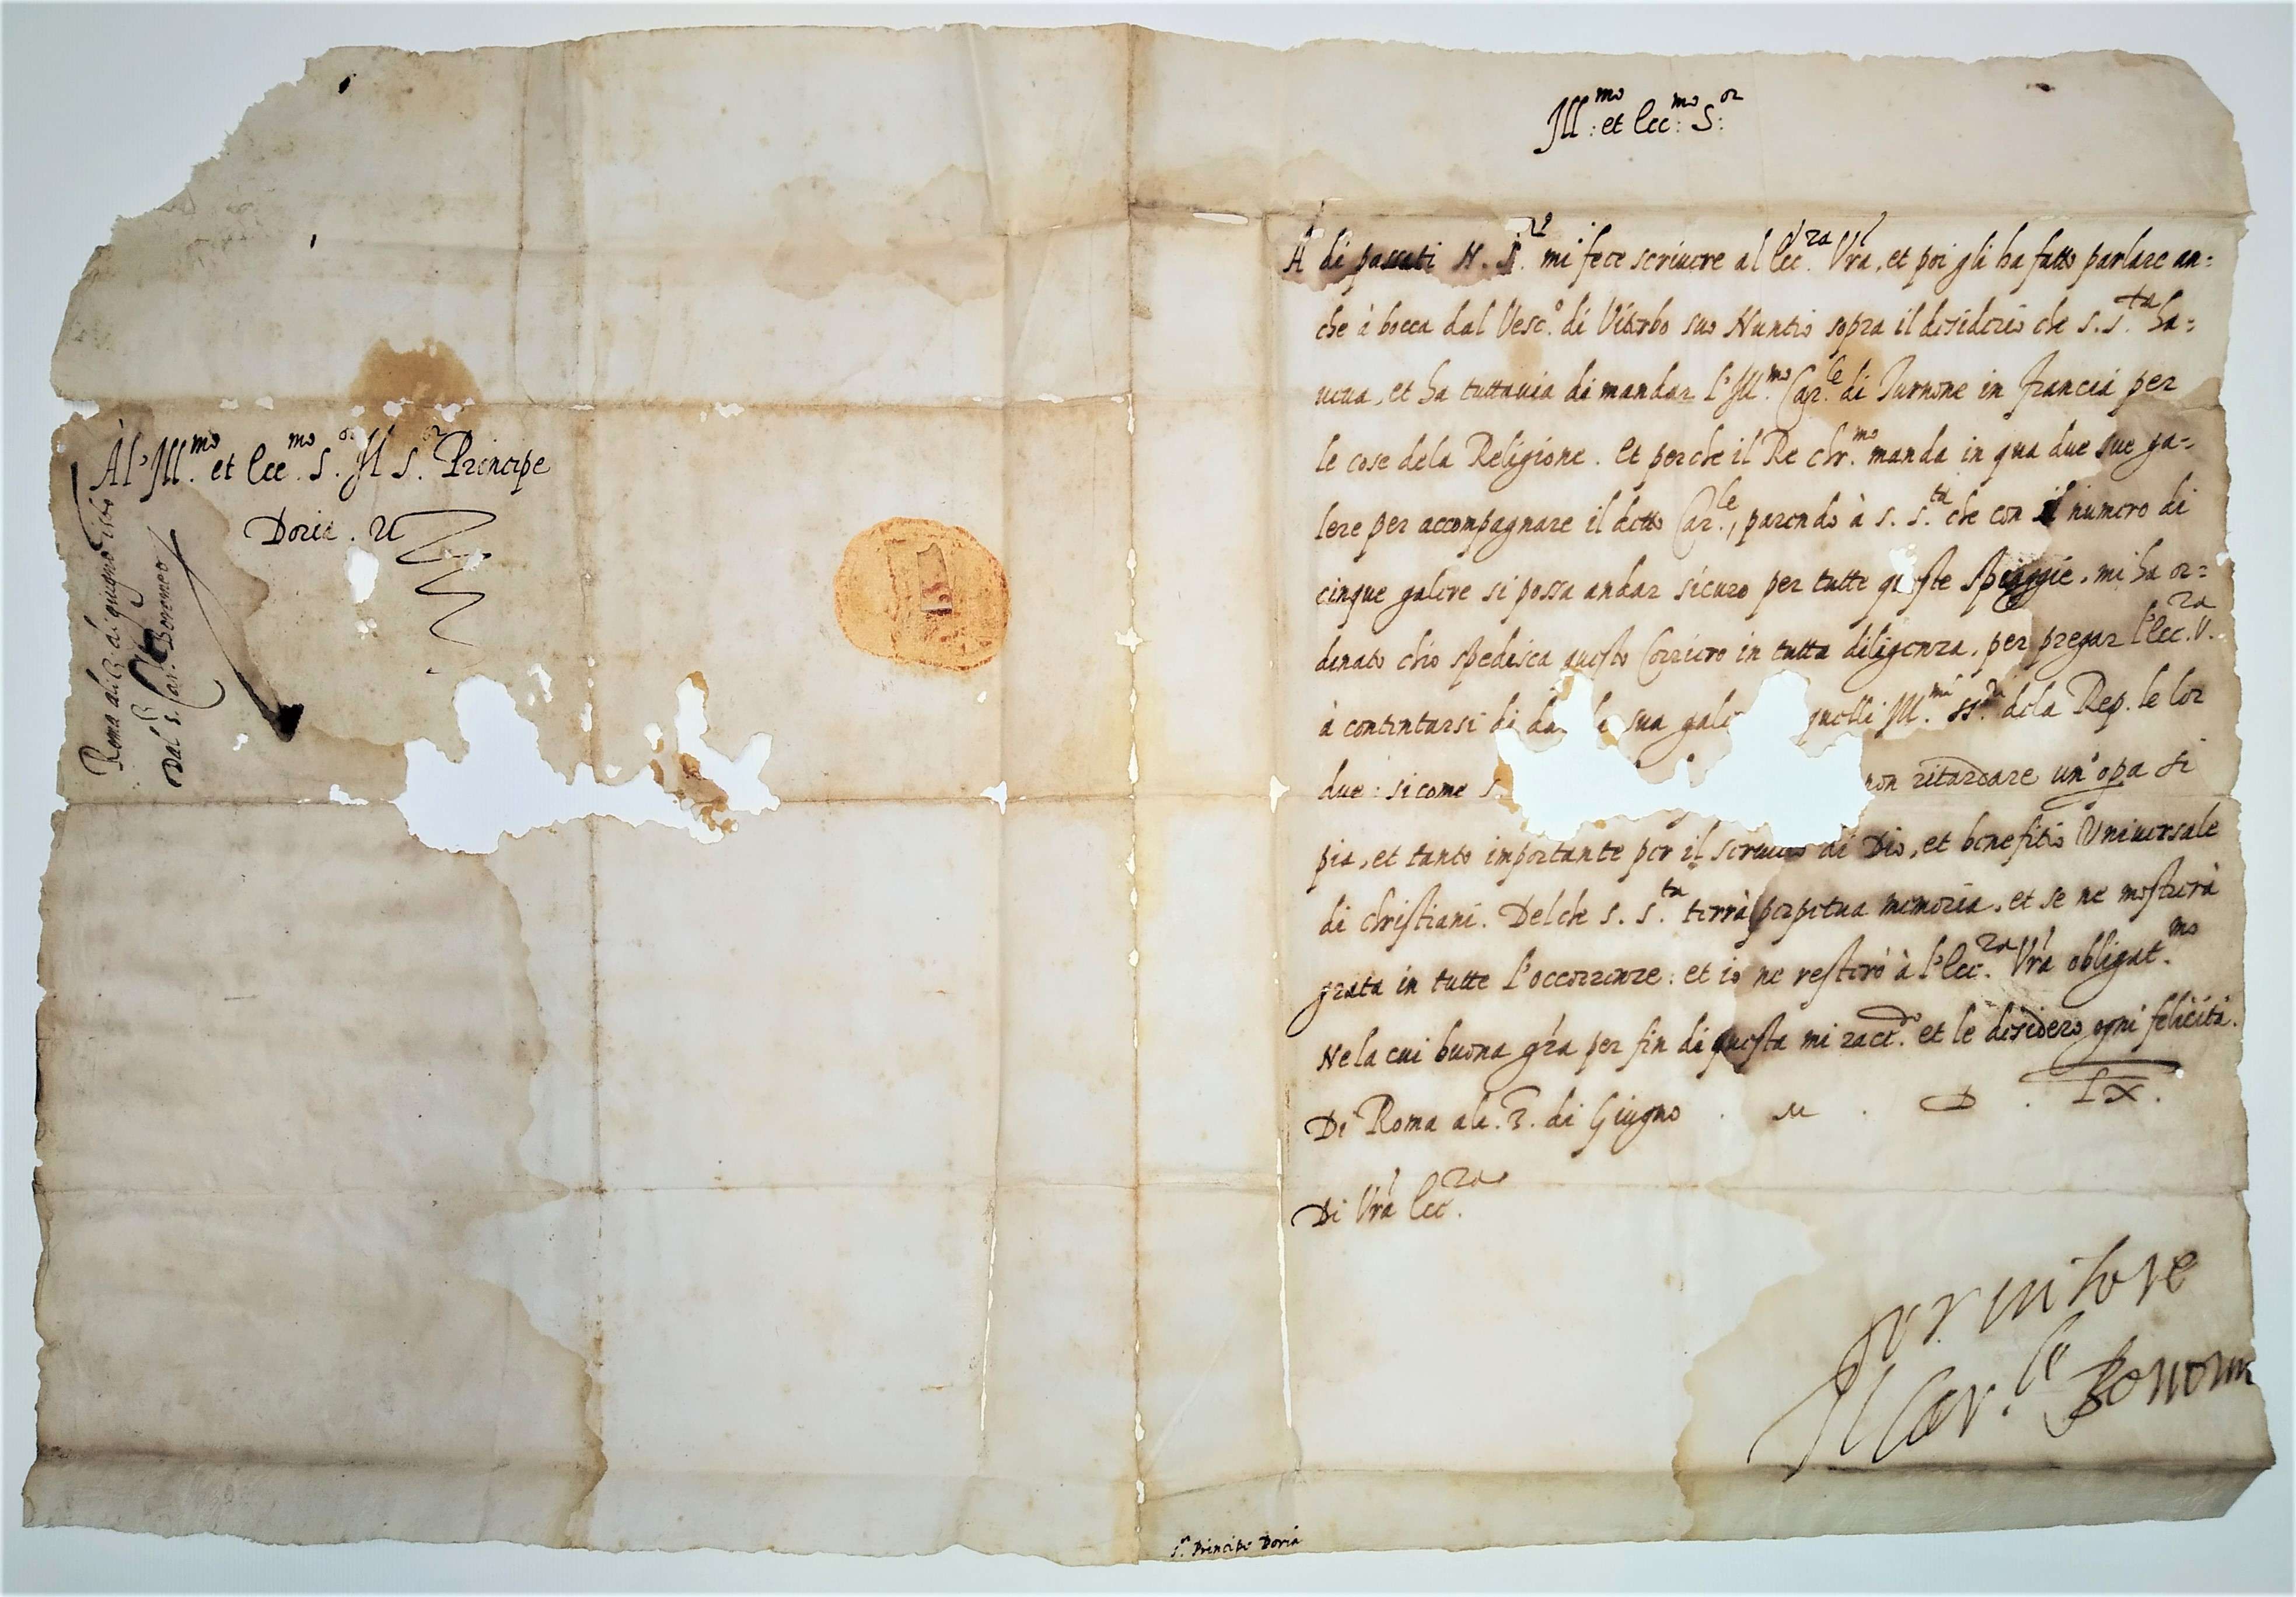 Ill.mo et Ecc.mo S.or
A di passati N. S.re mi fece scrivere al Ecc.za Vra, et poi gli ha fatto parlare an=
che à bocca dal Vesc.o di Viterbo suo Nuntio sopra il desiderio che S. S.ta ha=
ueua, et ha tuttauia di mandar l'Ill.mo Car.le di Turnone in francia per
le cose dela Religione. Et perche il Re chr.mo manda in qua due sue ga=
lere per accompagnare il detto Car.le, parendo à S. S.ta che con il numero di
cinque galere si possa andar sicuro per tutte queste spiaggie, mi ha or=
dinato ch'io spedisca questo Corriero in tutta diligenza, per pregar l'Ecc.za V.
à contentarsi di sua quelli Ill.mi SS.ri dela Rep. le lor
due: sicome S. non ritardare un'opa si
pia, et tanto importante per il seruitio di Dio, et benefitio Uniuersale
di christiani. Delche S. S.ta terrà perpetua memoria, et se ne mostrerà
grata in tutte l'occorrenze: et io ne resterò à l'Ecc.za Vra obligat.mo
Nela cui buona gra per fin di questa mi racc.do et le desidero ogni felicità.
Di Roma ale. 3. di Giugno . M . D . LX.
Di Vra Ecc.za
Ser.uitore
Il Car.le Borrom
S.r Principe Doria
Al'Ill.mo et Ecc.mo S.or Il S.or Principe
Doria.
Roma ali 3 di giugno 1560
Dal S. Car. Boromeo